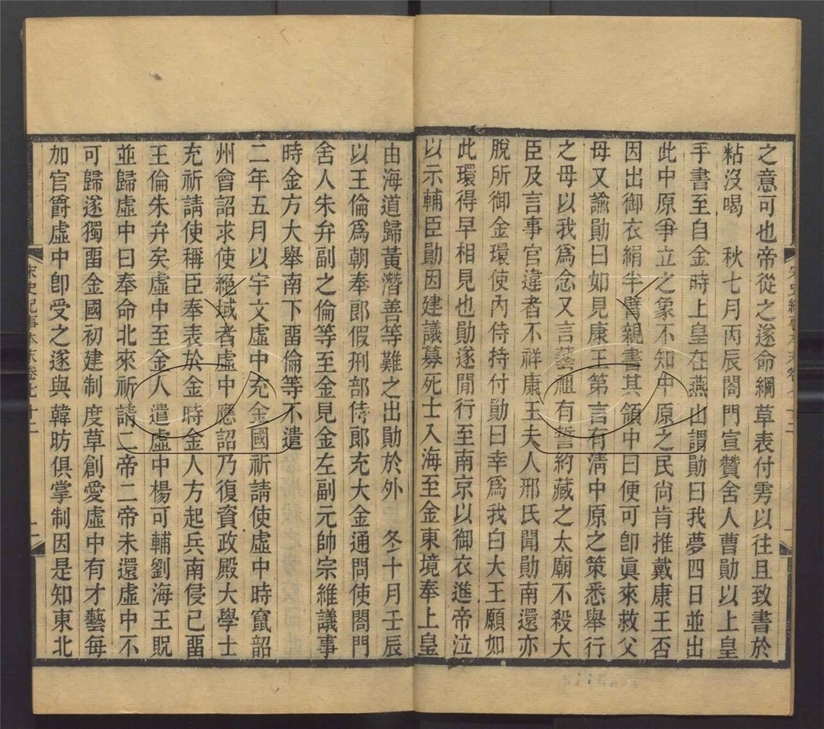 之意可也帝從之遂命綱草表付雱以往且致書於
粘沒喝　秋七月丙辰閤門宣贊舍人曹勛以上皇
手書至自金時上皇在燕山謂勛曰我夢四日並出
此中原爭立之象不知中原之民尚肯推戴康王否
因出御衣絹半臂親書其領中曰便可卽眞來救父
母又諭勛曰如見康王第言有清中原之策悉舉行
之毋以我爲念又言藝祖有誓約藏之太廟不殺大
臣及言事官違者不祥康王夫人邢氏聞勛南還亦
脫所御金環使內侍持付勛曰幸爲我白大王願如
此環得早相見也勛遂閒行至南京以御衣進帝泣
以示輔臣勛因建議募死士入海至金東境奉上皇
宋史紀事本末卷七十二
由海道歸黃潛善等難之出勛於外　冬十月壬辰
以王倫爲朝奉郎假刑部侍郎充大金通問使閤門
舍人朱弁副之倫等至金見金左副元帥宗維議事
時金方大舉南下畱倫等不遣
二年五月以宇文虛中充金國祈請使虛中時竄韶
州會詔求使絕域者虛中應詔乃復資政殿大學士
充祈請使稱臣奉表於金時金人方起兵南侵已畱
王倫朱弁矣虛中至金人遣虛中楊可輔劉海王貺
並歸虛中曰奉命北來祈請二帝二帝未還虛中不
可歸遂獨畱金國初建制度草創愛虛中有才藝每
加官爵虛中卽受之遂與韓昉俱掌制因是知東北
宋史紀事本末卷七十二